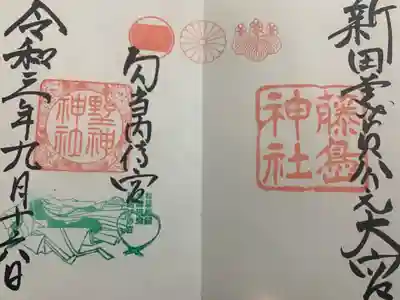 新田義貞公
大宮
藤島
神社
勾当内侍宮
野神
神社
令和三年九月十六日